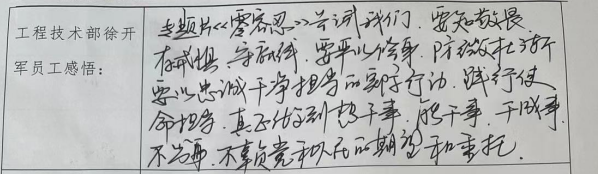 工程技术部徐开
军员工感悟：
专题片《零容忍》告诫我们，要知敬畏、
存戒惧、守底线，要严以律己，防微杜渐
要以忠诚干净担当的实际行动，践行使
命担当，真正做到想干事、能干事、干成事、
不出事，不辜负党和人民的期望和重托。